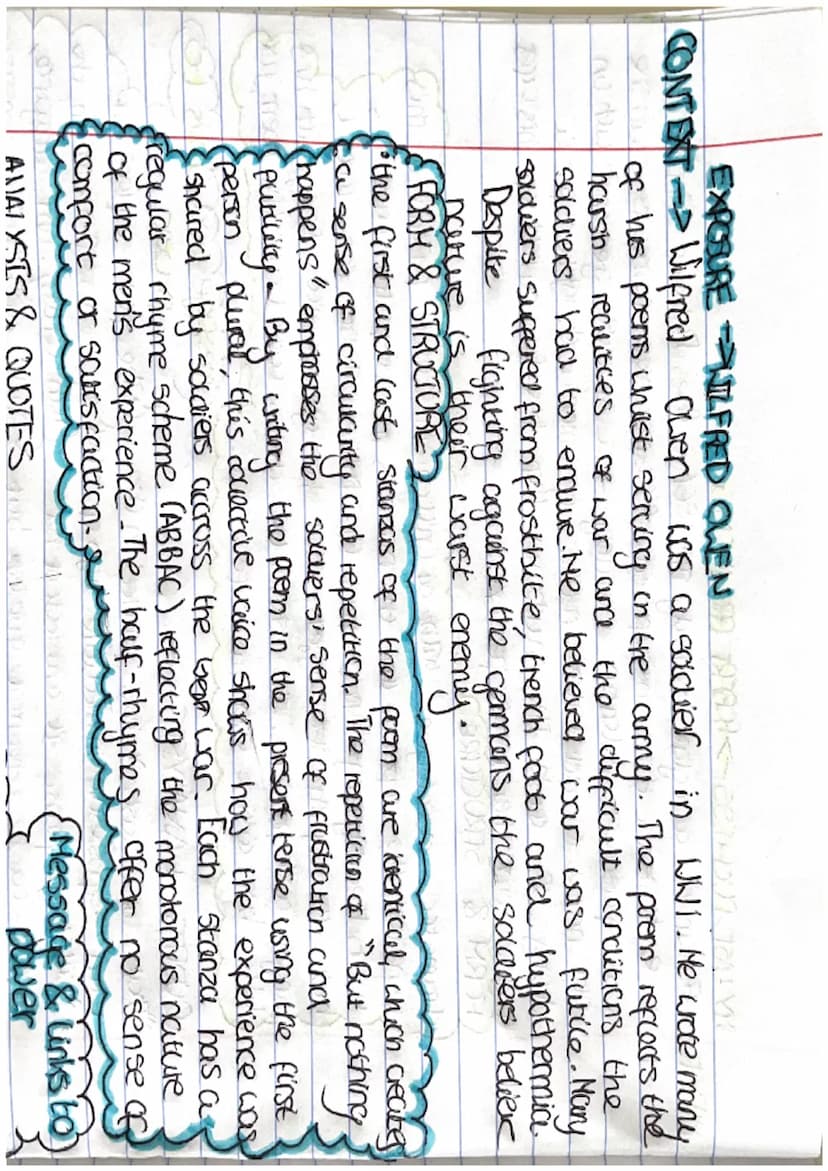 EXPOSURE → WILFRED OWEN
CONTEXT → Wilfred Owen was a soldier in WW1. He wrote many
of his poems whilst serving in the army. The poem reflects the
harsh realities of war and the difficult conditions the
soldiers had to endure. He believed war was futile. Many
soldiers suffered from frostbite, trench foot and hypothermia.
Despite fighting against the germans the soldiers believe
nature is their worst enemy.
FORM & STRUCTURE
• the first and last stanzas of the poem are identical, which creates
a sense of circularity and repetition. The repetition of "But nothing
happens" emphases the soldiers' sense of frustration and
futility. By writing the poem in the present tense using the first
person plural, this collective voice shows how the experience was
shared by soldiers across the war. Each stanza has a
regular rhyme scheme (ABBAC) reflecting the monotonous nature
of the men's experience. The half-rhymes offer no sense of
comfort or satisfaction.
Message & links to
power
ANALYSIS & QUOTES